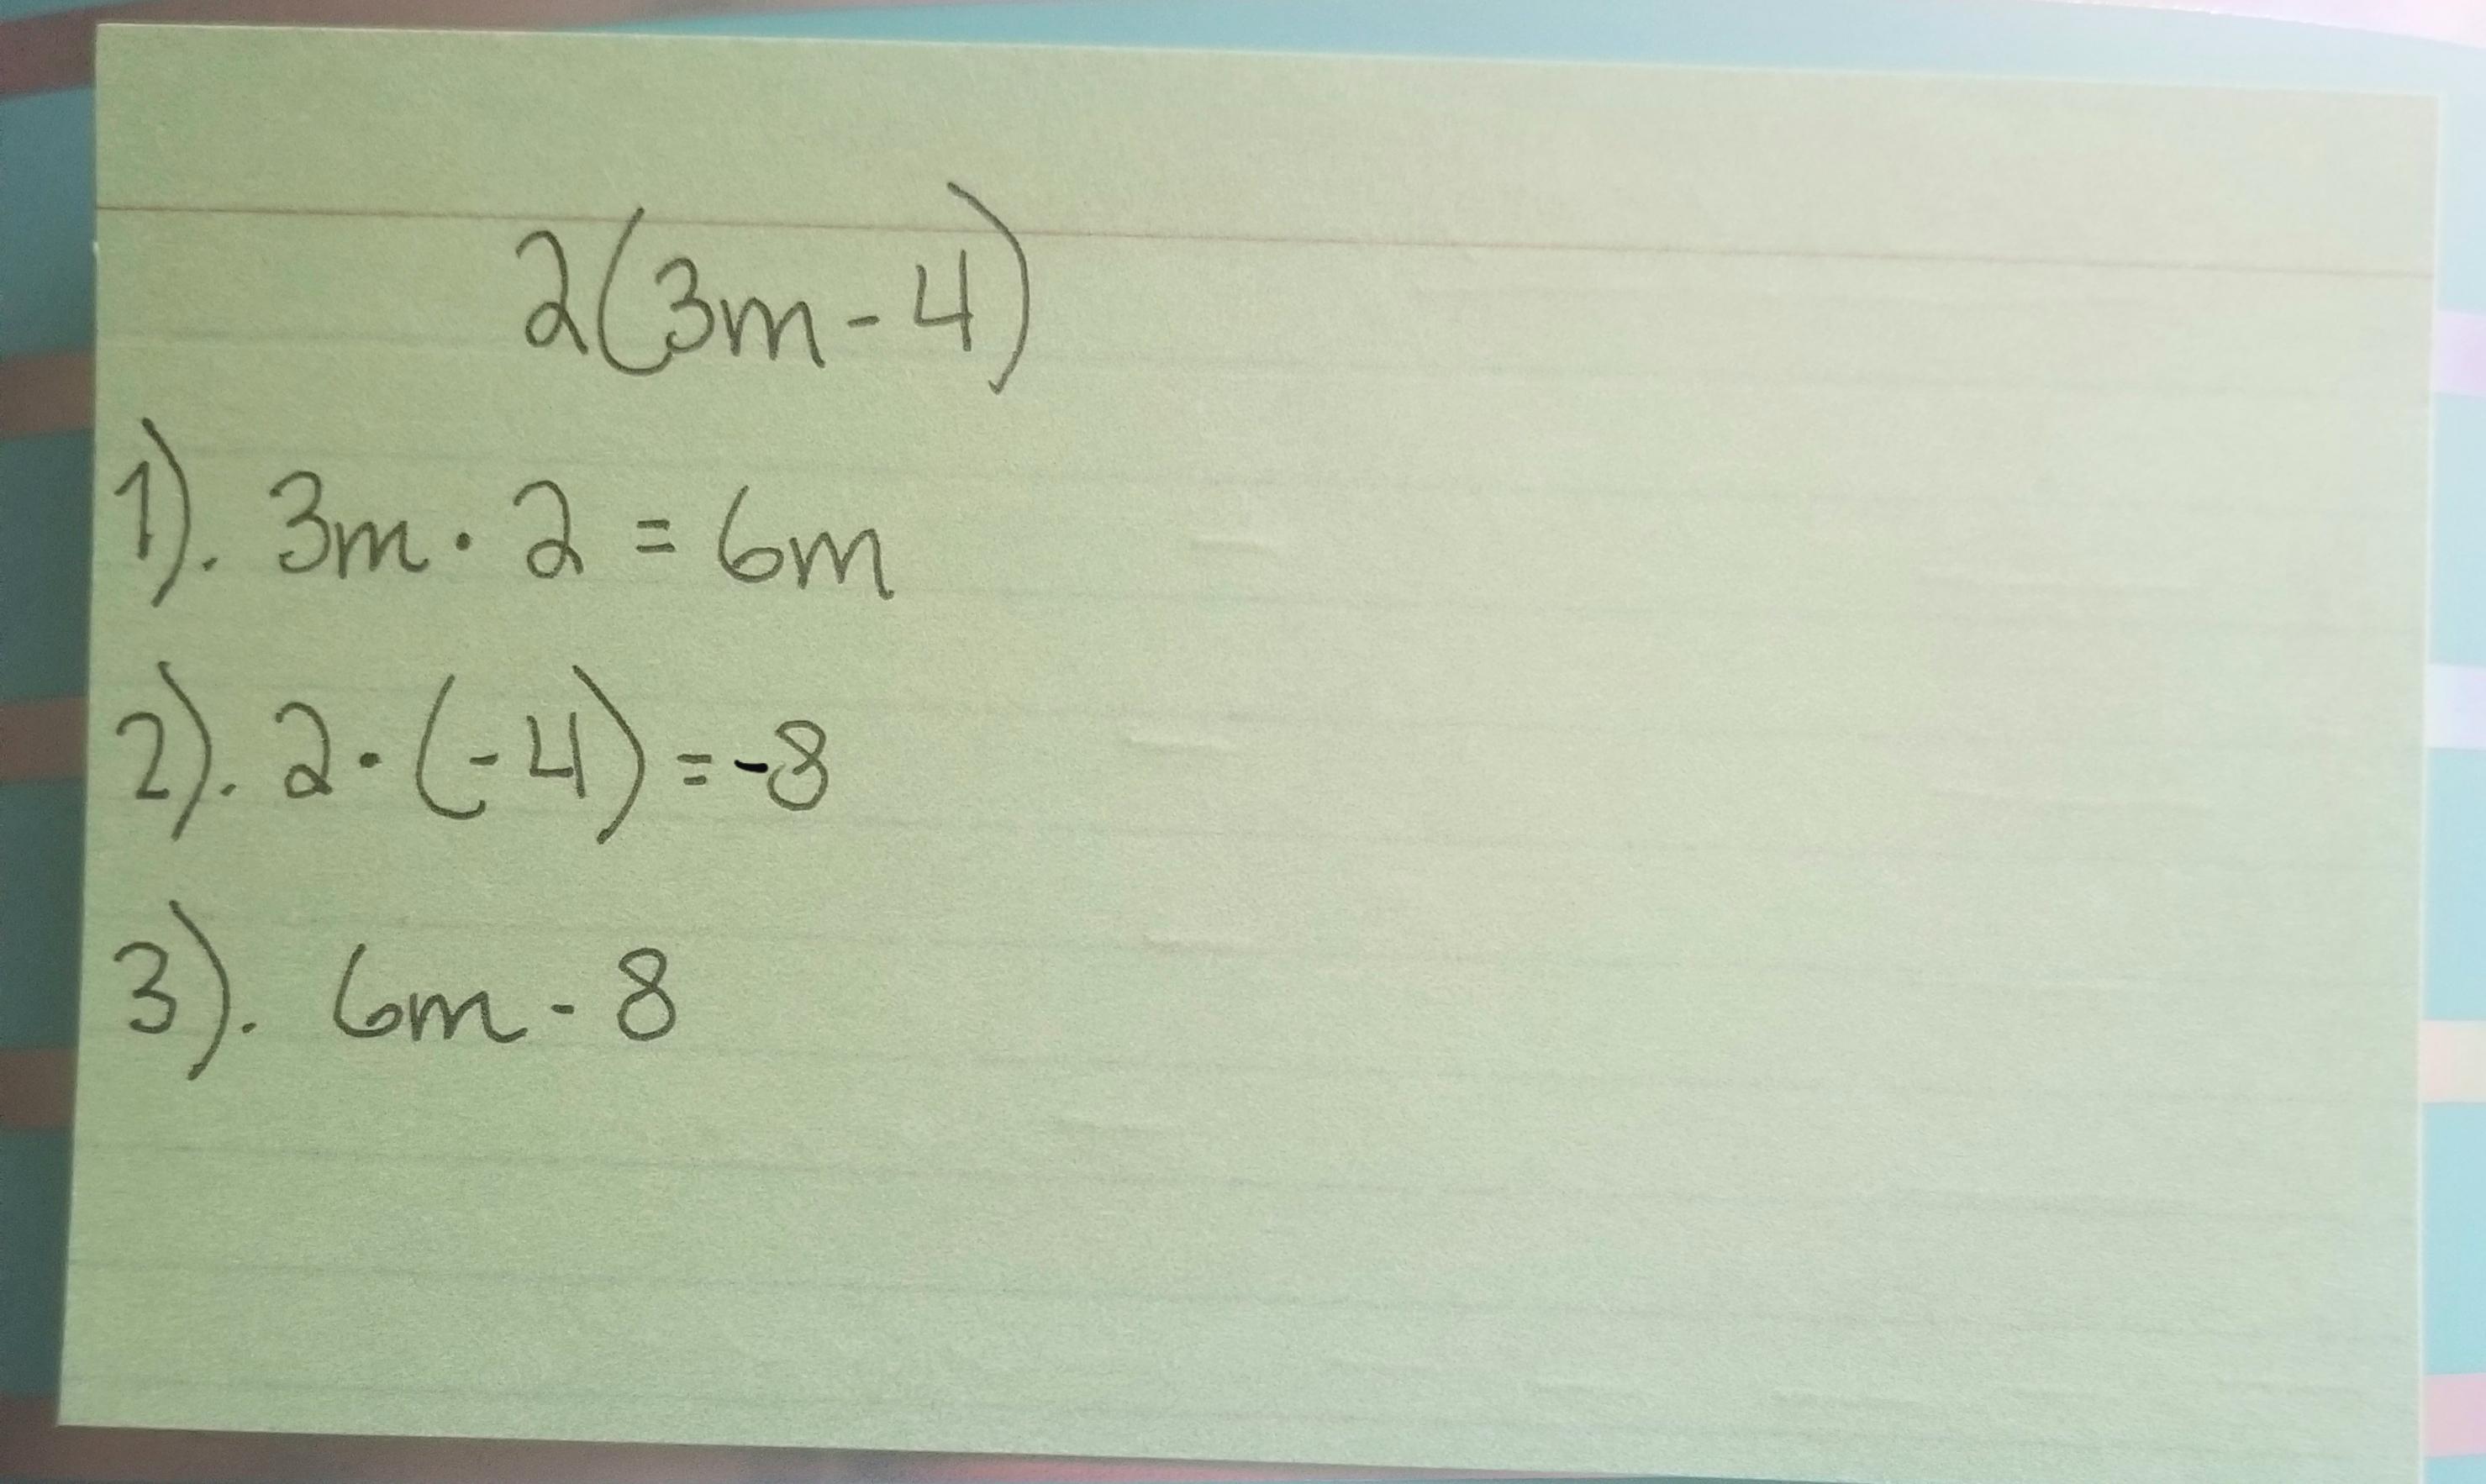 2(3m - 4)
1). 3m · 2 = 6m
2). 2 · (-4) = -8
3). 6m - 8